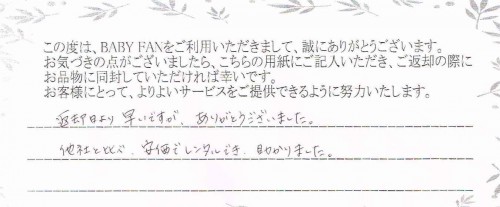 この度は、BABY FANをご利用いただきまして、誠にありがとうございます。
お気づきの点がございましたら、こちらの用紙にご記入いただき、ご返却の際に
お品物に同封していただければ幸いです。
お客様にとって、よりよいサービスをご提供できるように努力いたします。
返却日より早いですが、ありがとうございました。
他社と比べ、安価でレンタルでき、助かりました。